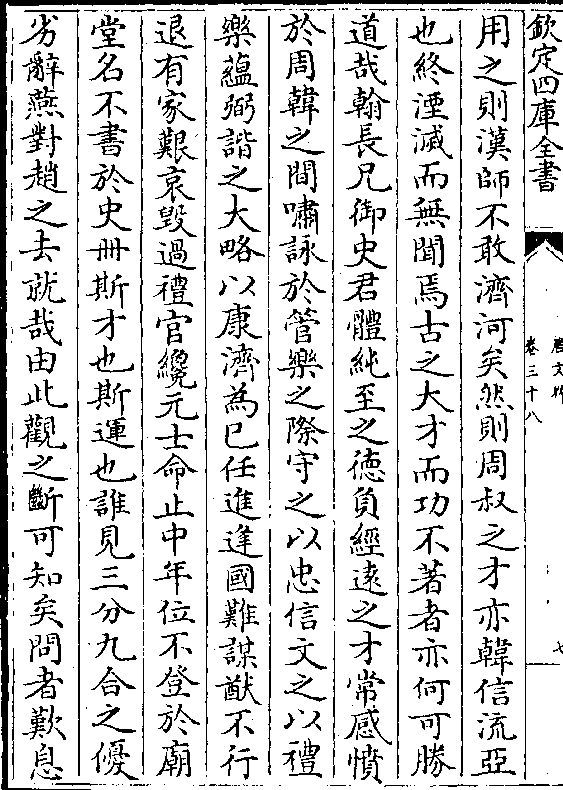 欽定四庫全書
卷三十八
七
用之則漢師不敢濟河矣然則周叔之才亦韓信流亞
也終湮滅而無聞焉古之大才而功不著者亦何可勝
道哉翰長兄御史君體純至之德負經逺之才常感憤
於周韓之間嘯詠於管樂之際守之以忠信文之以禮
樂蘊弼諧之大略以康濟為已任進逢國難謀猷不行
退有家艱哀毀過禮官纔元士命止中年位不登於廟
堂名不書於史冊斯才也斯運也誰見三分九合之優
劣辭燕對趙之去就哉由此觀之斷可知矣問者歎息